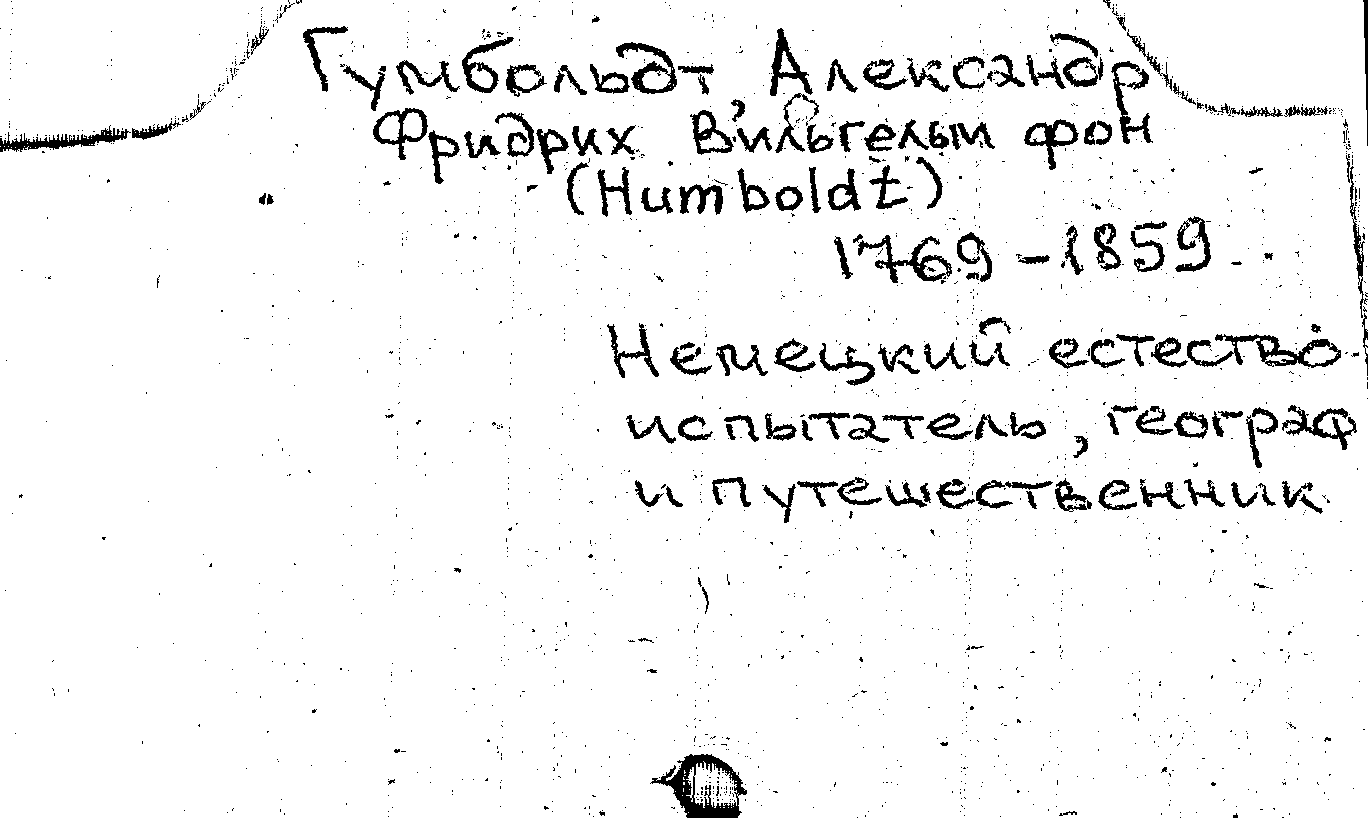 Гумбольдт, Александр
Фридрих Вильгельм фон
(Humboldt)
1769-1859
Немецкий естество-
испытатель, географ
и путешественник